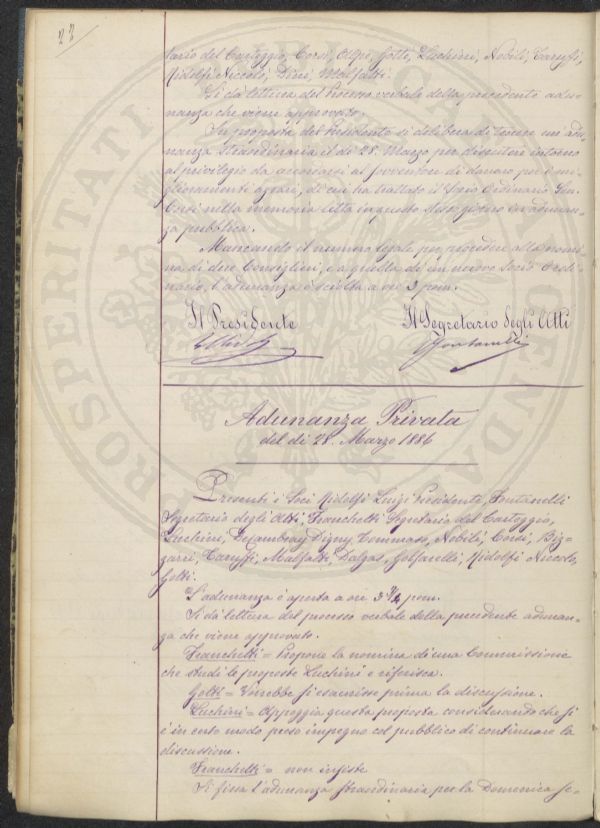 22
tario del Carteggio, Corsi, Alpe, Gotti, Luchini, Nobili, Caruffi,
Ridolfi Niccolò, Dini, Malfatti.
Si dà lettura del Processo verbale della precedente adu-
nanza che viene approvato.
Su proposta del Presidente si delibera di tenere un'adu-
nanza straordinaria il dì 28. Marzo per discutere intorno
al privilegio da accordarsi al sovventore di danaro per i mi-
glioramenti agrari, di cui ha trattato il Socio Ordinario
Corsi nella memoria letta in questo stesso giorno in adunan-
za pubblica.
Mancando il numero legale per procedere alla nomi-
na di dieci Consiglieri, e a quella di un nuovo Socio Ordi-
nario, l'adunanza è sciolta a ore 3 pom.
Il Presidente
Il Segretario degli Atti
LRidolfi
Fontanelli
Adunanza Privata
del dì 28. Marzo 1886
Presenti i Soci Ridolfi Luigi Presidente, Fontanelli
Segretario degli Atti, Franchetti Segretario del Carteggio,
Luchini, De Cambray Digny Tommaso, Nobili, Corsi, Biz=
zarri, Caruffi, Malfatti, Dalgas, Golfarelli, Ridolfi Niccolò,
Gotti.
L'adunanza è aperta a ore 3 1/2 pom.
Si dà lettura del processo verbale della precedente adunan-
za che viene approvato.
Franchetti = Propone la nomina di una Commissione
che studi le proposte Luchini e riferisca.
Gotti = Vorrebbe si esaurisse prima la discussione.
Luchini = Appoggia questa proposta considerando che si
è in certo modo preso impegno col pubblico di continuare la
discussione.
Franchetti = non insiste
Si fissa l'adunanza straordinaria per la Domenica se-
PROSPERITATI PUBLICAE AUGENDAE